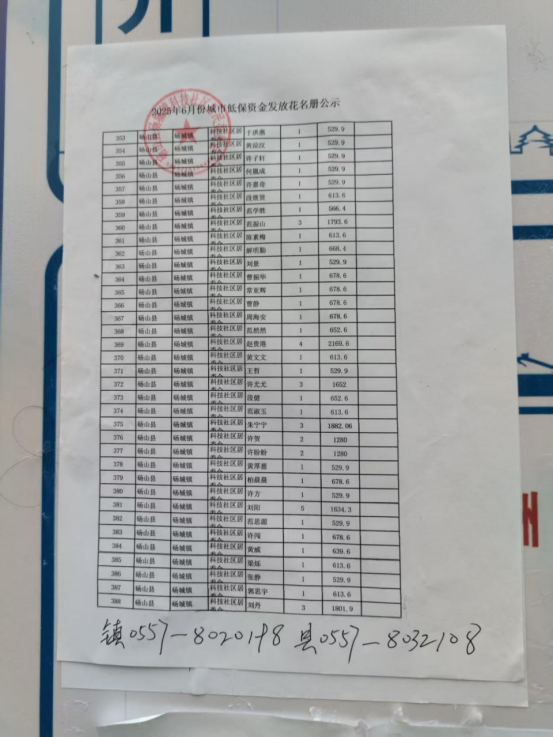 2025年6月份城市低保资金发放花名册公示
353 砀山县 砀城镇 科技社区居委会 于洪惠 1 529.9
354 砀山县 砀城镇 科技社区居委会 1 529.9
355 砀山县 砀城镇 科技社区居委会 许子轩 1 529.9
356 砀山县 砀城镇 科技社区居委会 何凰成 1 529.9
357 砀山县 砀城镇 科技社区居委会 许嘉奇 1 529.9
358 砀山县 砀城镇 科技社区居委会 段继贤 1 613.6
359 砀山县 砀城镇 科技社区居委会 范学胜 1 566.4
360 砀山县 砀城镇 科技社区居委会 范振山 3 1793.6
361 砀山县 砀城镇 科技社区居委会 1 613.6
362 砀山县 砀城镇 科技社区居委会 解明勤 1 668.4
363 砀山县 砀城镇 科技社区居委会 刘景 1 529.9
364 砀山县 砀城镇 科技社区居委会 曹振华 1 678.6
365 砀山县 砀城镇 科技社区居委会 常亚辉 1 678.6
366 砀山县 砀城镇 科技社区居委会 曹静 1 678.6
367 砀山县 砀城镇 科技社区居委会 周海安 1 678.6
368 砀山县 砀城镇 科技社区居委会 范然然 1 652.6
369 砀山县 砀城镇 科技社区居委会 赵贵港 4 2169.6
370 砀山县 砀城镇 科技社区居委会 黄文文 1 613.6
371 砀山县 砀城镇 科技社区居委会 王哲 1 529.9
372 砀山县 砀城镇 科技社区居委会 许尤尤 3 1652
373 砀山县 砀城镇 科技社区居委会 段健 1 652.6
374 砀山县 砀城镇 科技社区居委会 范淑玉 1 613.6
375 砀山县 砀城镇 科技社区居委会 朱宁宁 3 1882.06
376 砀山县 砀城镇 科技社区居委会 许贺 2 1280
377 砀山县 砀城镇 科技社区居委会 许盼盼 2 1280
378 砀山县 砀城镇 科技社区居委会 黄厚慈 1 529.9
379 砀山县 砀城镇 科技社区居委会 柏晨晨 1 678.6
380 砀山县 砀城镇 科技社区居委会 许方 1 529.9
381 砀山县 砀城镇 科技社区居委会 刘阳 5 1634.3
382 砀山县 砀城镇 科技社区居委会 范思源 1 529.9
383 砀山县 砀城镇 科技社区居委会 许闯 1 678.6
384 砀山县 砀城镇 科技社区居委会 黄威 1 639.6
385 砀山县 砀城镇 科技社区居委会 梁烁 1 613.6
386 砀山县 砀城镇 科技社区居委会 张静 1 529.9
387 砀山县 砀城镇 科技社区居委会 郭思宇 1 613.6
388 砀山县 砀城镇 科技社区居委会 刘丹 3 1801.9
镇0557-8020198 县0557-8032108
州